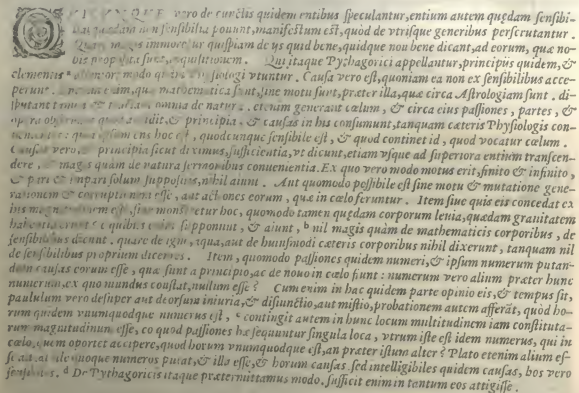 VICVNQVE vero de cunctis quidem entibus speculantur, entium autem quędam sensibi-
lia quædam non sensibilia ponunt, manifestum est, quòd de vtrisque generibus perscrutantur.
magis immoretur quispiam de ijs quid bene, quidque non bene dicant, ad eorum, quæ no-
bis proposita sunt, inquisitionem. Qui itaque Pythagorici appellantur, principijs quidem, &
elementis modo quàm Physiologi vtuntur. Causa vero est, quoniam ea non ex sensibilibus acce-
perunt. quæ mathematica sunt, sine motu sunt, præter illa, quæ circa Astrologiam sunt. di-
sputant tamen & tractant omnia de natura. etenim generant cœlum, & circa eius passiones, partes, &
opera & principia, & causas in his consumunt, tanquam cæteris Physiologis con-
quod ipsum ens hoc est, quodcunque sensibile est, & quod continet id, quod vocatur cœlum.
Causas vero, & principia sicut diximus, sufficientia, vt dicunt, etiam vsque ad superiora entium transcen-
dere, & magis quàm de natura sermonibus conuenientia. Ex quo vero modo motus erit, finito & infinito,
& pari & impari solum suppositis, nihil aiunt. Aut quomodo possibile est sine motu & mutatione gene-
rationem & corruptionem esse, aut actiones eorum, quæ in cœlo feruntur. Item siue quis eis concedat ex
ijs magnitudinem esse, siue monstretur hoc, quomodo tamen quędam corporum leuia, quædam grauitatem
habentia erunt? ex quibus enim supponunt, & aiunt, b nil magis quàm de mathematicis corporibus, de
sensibilibus dicunt. quare de igni, aqua, aut de huiusmodi cæteris corporibus nihil dixerunt, tanquam nil
de sensibilibus proprium dicentes. Item, quomodo passiones quidem numeri, & ipsum numerum putan-
dum causas eorum esse, quæ sunt a principio, ac de nouo in cælo fiunt: numerum vero alium præter hunc
numerum, ex quo mundus constat, nullum esse? Cum enim in hac quidem parte opinio eis, & tempus sit,
paululum vero desuper aut deorsum iniuria, & disiunctio, aut mistio, probationem autem afferāt, quòd ho-
rum quidem vnumquodque numerus est, c contingit autem in hunc locum multitudinem iam constituta-
rum magnitudinum esse, eo quod passiones hæ sequuntur singula loca, vtrum iste est idem numerus, qui in
cœlo, quem oportet accipere, quod horum vnumquodque est, an præter istum alter? Plato etenim alium es-
se ait. at ille quoque numeros putat, & illa esse, & horum causas, sed intelligibiles quidem causas, hos vero
sensibiles. d De Pythagoricis itaque prætermittamus modo. sufficit enim in tantum eos attigisse.